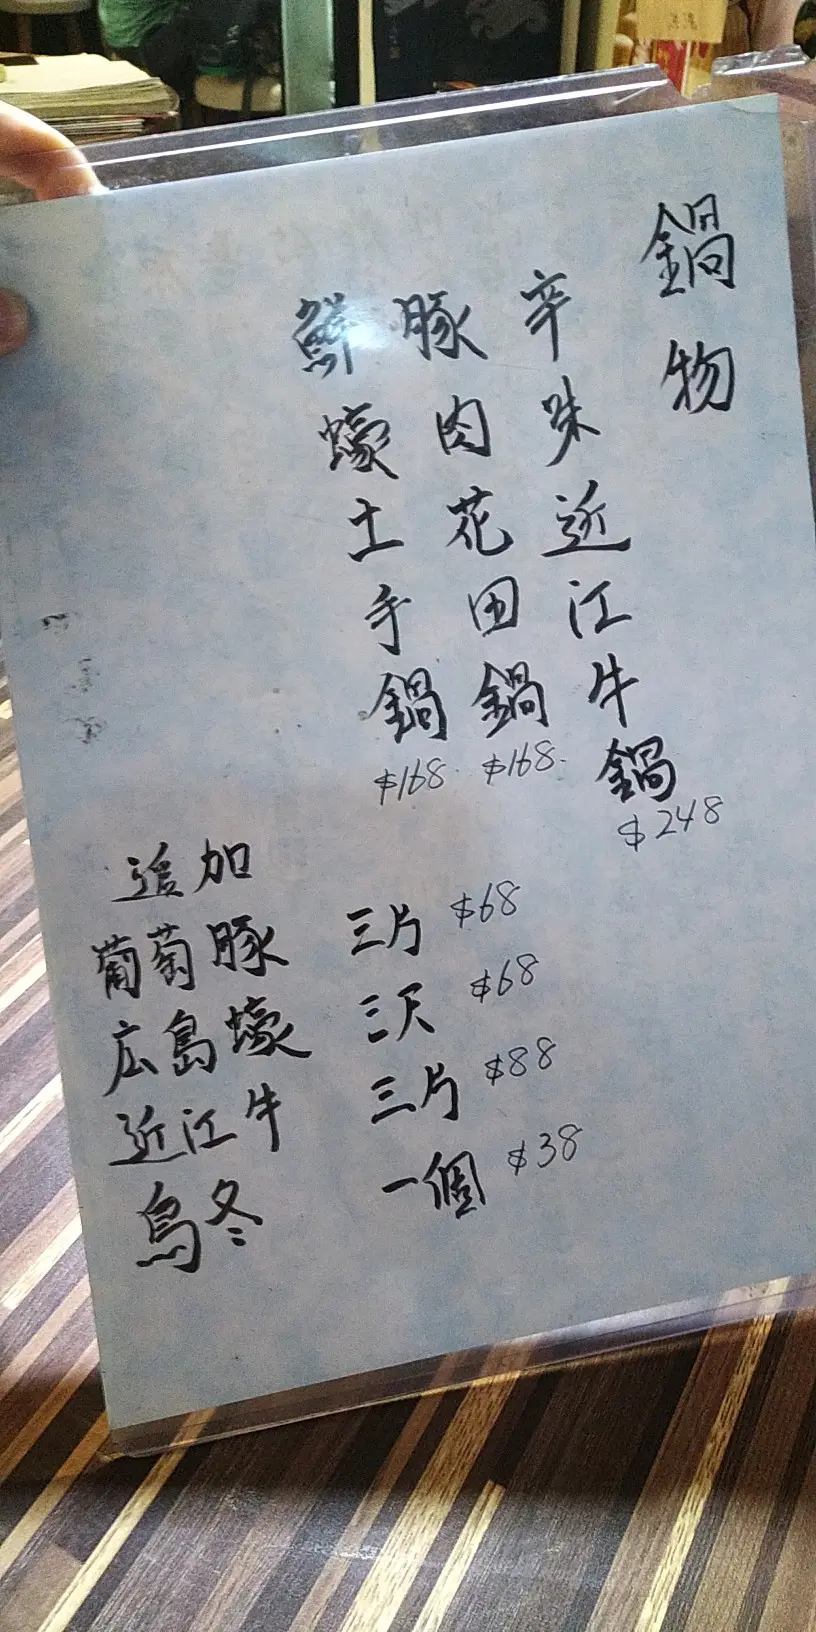 鍋物
辛味近江牛鍋 $248
豚肉花田鍋 $168
鮮蠔土手鍋 $168
追加
葡萄豚 三片 $68
広島蠔 三只 $68
近江牛 三片 $88
烏冬 一個 $38